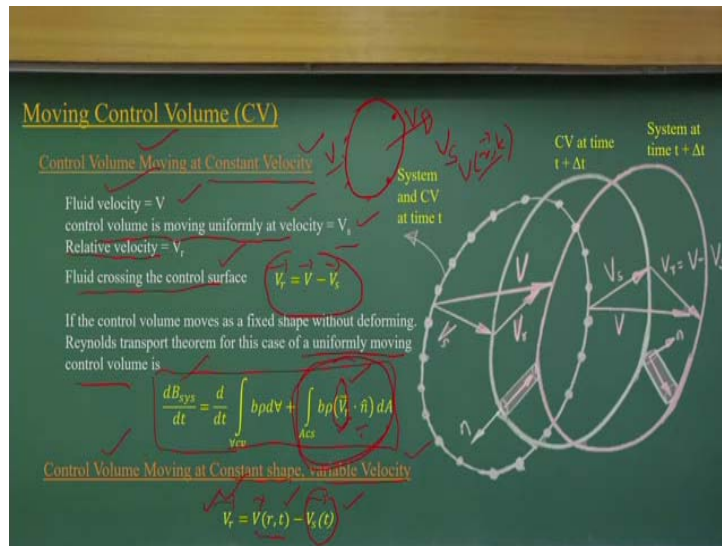 Moving Control Volume (CV)
Control Volume Moving at Constant Velocity
Fluid velocity = V
control volume is moving uniformly at velocity = Vₛ
Relative velocity = Vᵣ
Fluid crossing the control surface
V⃗ᵣ = V⃗ − V⃗ₛ
If the control volume moves as a fixed shape without deforming.
Reynolds transport theorem for this case of a uniformly moving
control volume is
dB_sys/dt = d/dt ∫_∀cv bρd∀ + ∫_Acs bρ(V⃗ᵣ · n̂) dA
Control Volume Moving at Constant shape, variable Velocity
V⃗ᵣ = V⃗(r, t) − V⃗ₛ(t)
Vₛ
System
and CV
at time t
CV at time
t + Δt
System at
time t + Δt
V
Vₛ
Vᵣ
n
Vₛ
V
Vᵣ = V − V
n